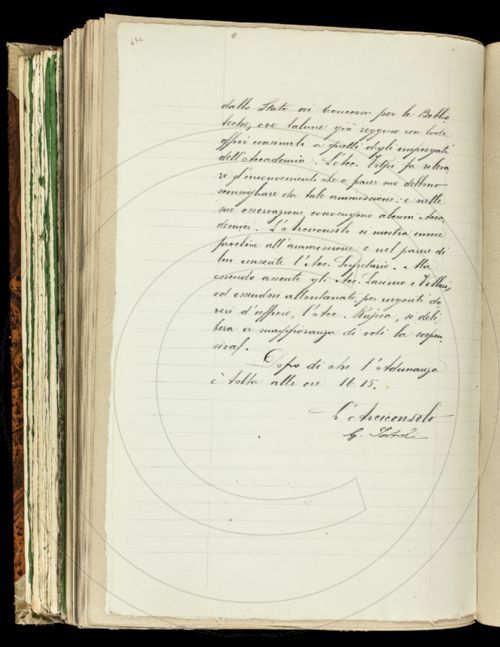 632
dallo Stato ai Concorsi per le Biblio
teche, ove taluni già reggono con lode
uffici consimili a quelli degli impiegati
dell'Accademia. L'Acc. Volpi fa rileva
re gl'inconvenienti che a parer suo debbono
consigliare da tale ammissione: e nelle
sue osservazioni convengono alcuni Acca
demici. L'Arciconsolo si mostra invece
proclive all'ammissione e nel parere di
lui consente l'Acc. Segretario. Ma
essendo assente gli Acc. e Villari,
ed essendosi allontanato, per urgenti do
veri d'ufficio, l'Acc. Rajna, si deli
bera a maggioranza di voti la sospen
siva.
Dopo di che l'Adunanza
è tolta alle ore 16.15.
L'Arciconsolo
G.